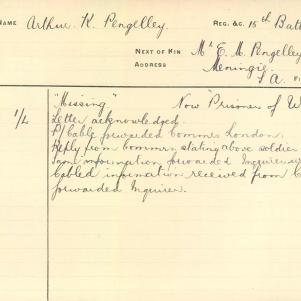 NAME Arthur K. Pengelley. REG. &C. 15th Batt
NEXT OF KIN Mr E. M. Pengelley
ADDRESS Meningie
S A.
"Missing" Now Prisoner of W
1/L Letter acknowledged.
P/Cable forwarded Commrs London.
Reply from Commrs, stating above soldier
Same information forwarded Inquirer
Cabled information received from C
forwarded Inquirer.